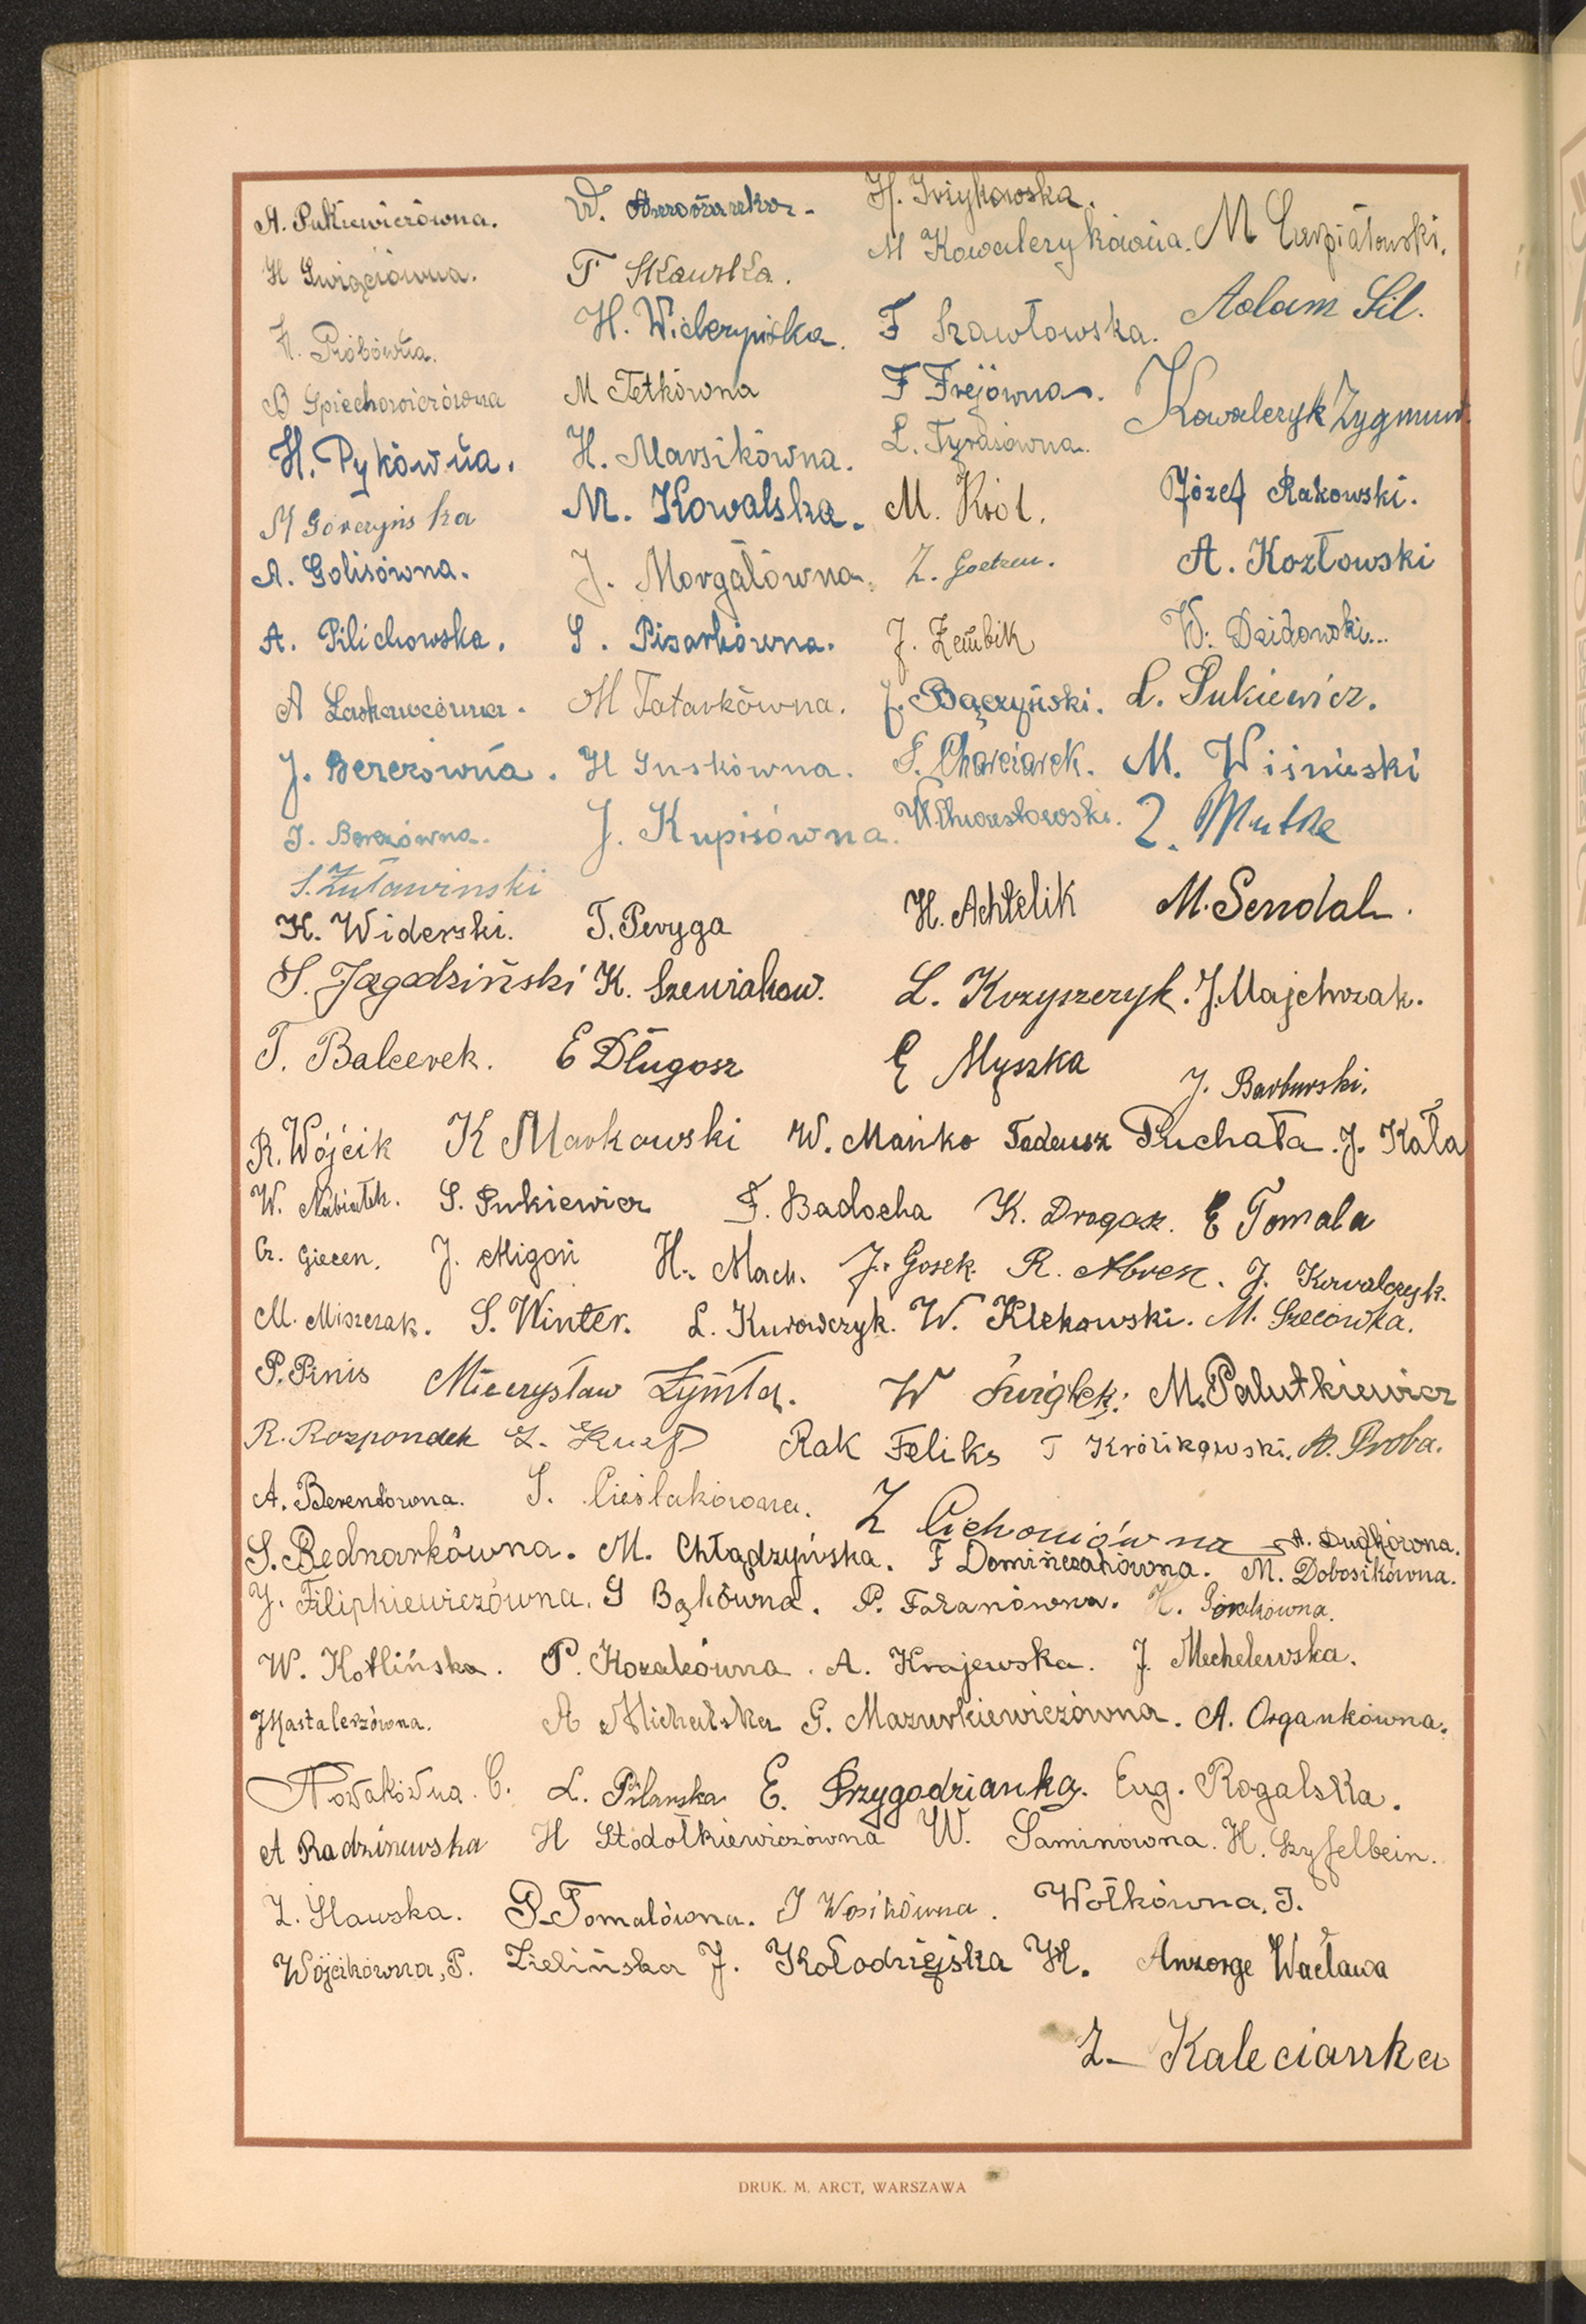 A. Pukiewiczówna.
H. Gwizykowska.
M Kowalczykówna.
H Święciówna.
F Skawska.
Adam Sil.
A. Próbówna.
F Szawłowska.
B Śpiechowiczówna
M Tetkówna
F Frejówna.
Kowalczyk Zygmunt
H. Pykówna.
H. Marsikówna.
L. Tyrasówna.
M Górczyńska
M. Kowalska.
M. Król.
Józef Rakowski.
A. Golisówna.
J. Morgałówna.
Z. Goetzen.
A. Kozłowski
A. Pilichowska.
S. Pisarkówna.
J. Zembik
W. Dzidowski...
A Laskawcówna.
M Tatarkówna.
J. Bączyński.
L. Pukiewicz.
J. Berezówna.
H Guskówna.
S. Charciarek.
M. Wiśnieski
J. Berezówna.
J. Kupisówna.
W Chwastowski.
Z. Mutke
S. Żuławinski
K. Widerski.
T. Peryga
H. Achtelik
M. Sendal.
S. Jagodziński
K. Szewiakow.
L. Krzyszczyk.
J. Majchrzak.
T. Balcerek.
E Długosz
E Myszka
J. Barburski.
R. Wójcik K Markowski W. Mańko Tadeusz Puchała. J. Kała
W. Nabiałek. S. Pukiewicz F. Badocha K. Dragosz. E Tomala
Cz. Giecen. J. Migoń H. Mach. J. Gosek. R. Abrek. J. Kowalczyk.
M. Miszczak. S. Winter. L. Kurowczyk. W. Klekowski. M. Szecówka.
P. Pinis Mieczysław Zymła. W Świąłek. M. Palutkiewicz
R. Rozpondek Rak Feliks T Królikowski. A. Proba.
A. Berentówna. S. Cieślakówna. Z Cichoniówna A. Dudkówna.
S. Bednarkówna. M. Chłądzyńska. F Domińczakówna. M. Dobosikówna.
J. Filipkiewiczówna. S Bąkówna. P. Fazanówna. H. Górakówna.
W. Kotlińska. P. Kozakówna. A. Krajewska. J. Mechelewska.
J Mastalerzówna. A Michalska G. Mazurkiewiczówna. A. Organkówna.
Nowakówna C. L. Pilarska E. Przygodzianka. Eug. Rogalska.
A Radzinewska H Stodołkiewiczówna W. Saminówna. H. Szyfelbein.
Z. Sławska. P. Tomalówna. J Wosikówna. Wołkówna, J.
Wójcikówna, P. Zielińska J. Kołodziejska H. Anzorge Wacława
Z. Kalecianka
DRUK. M. ARCT, WARSZAWA